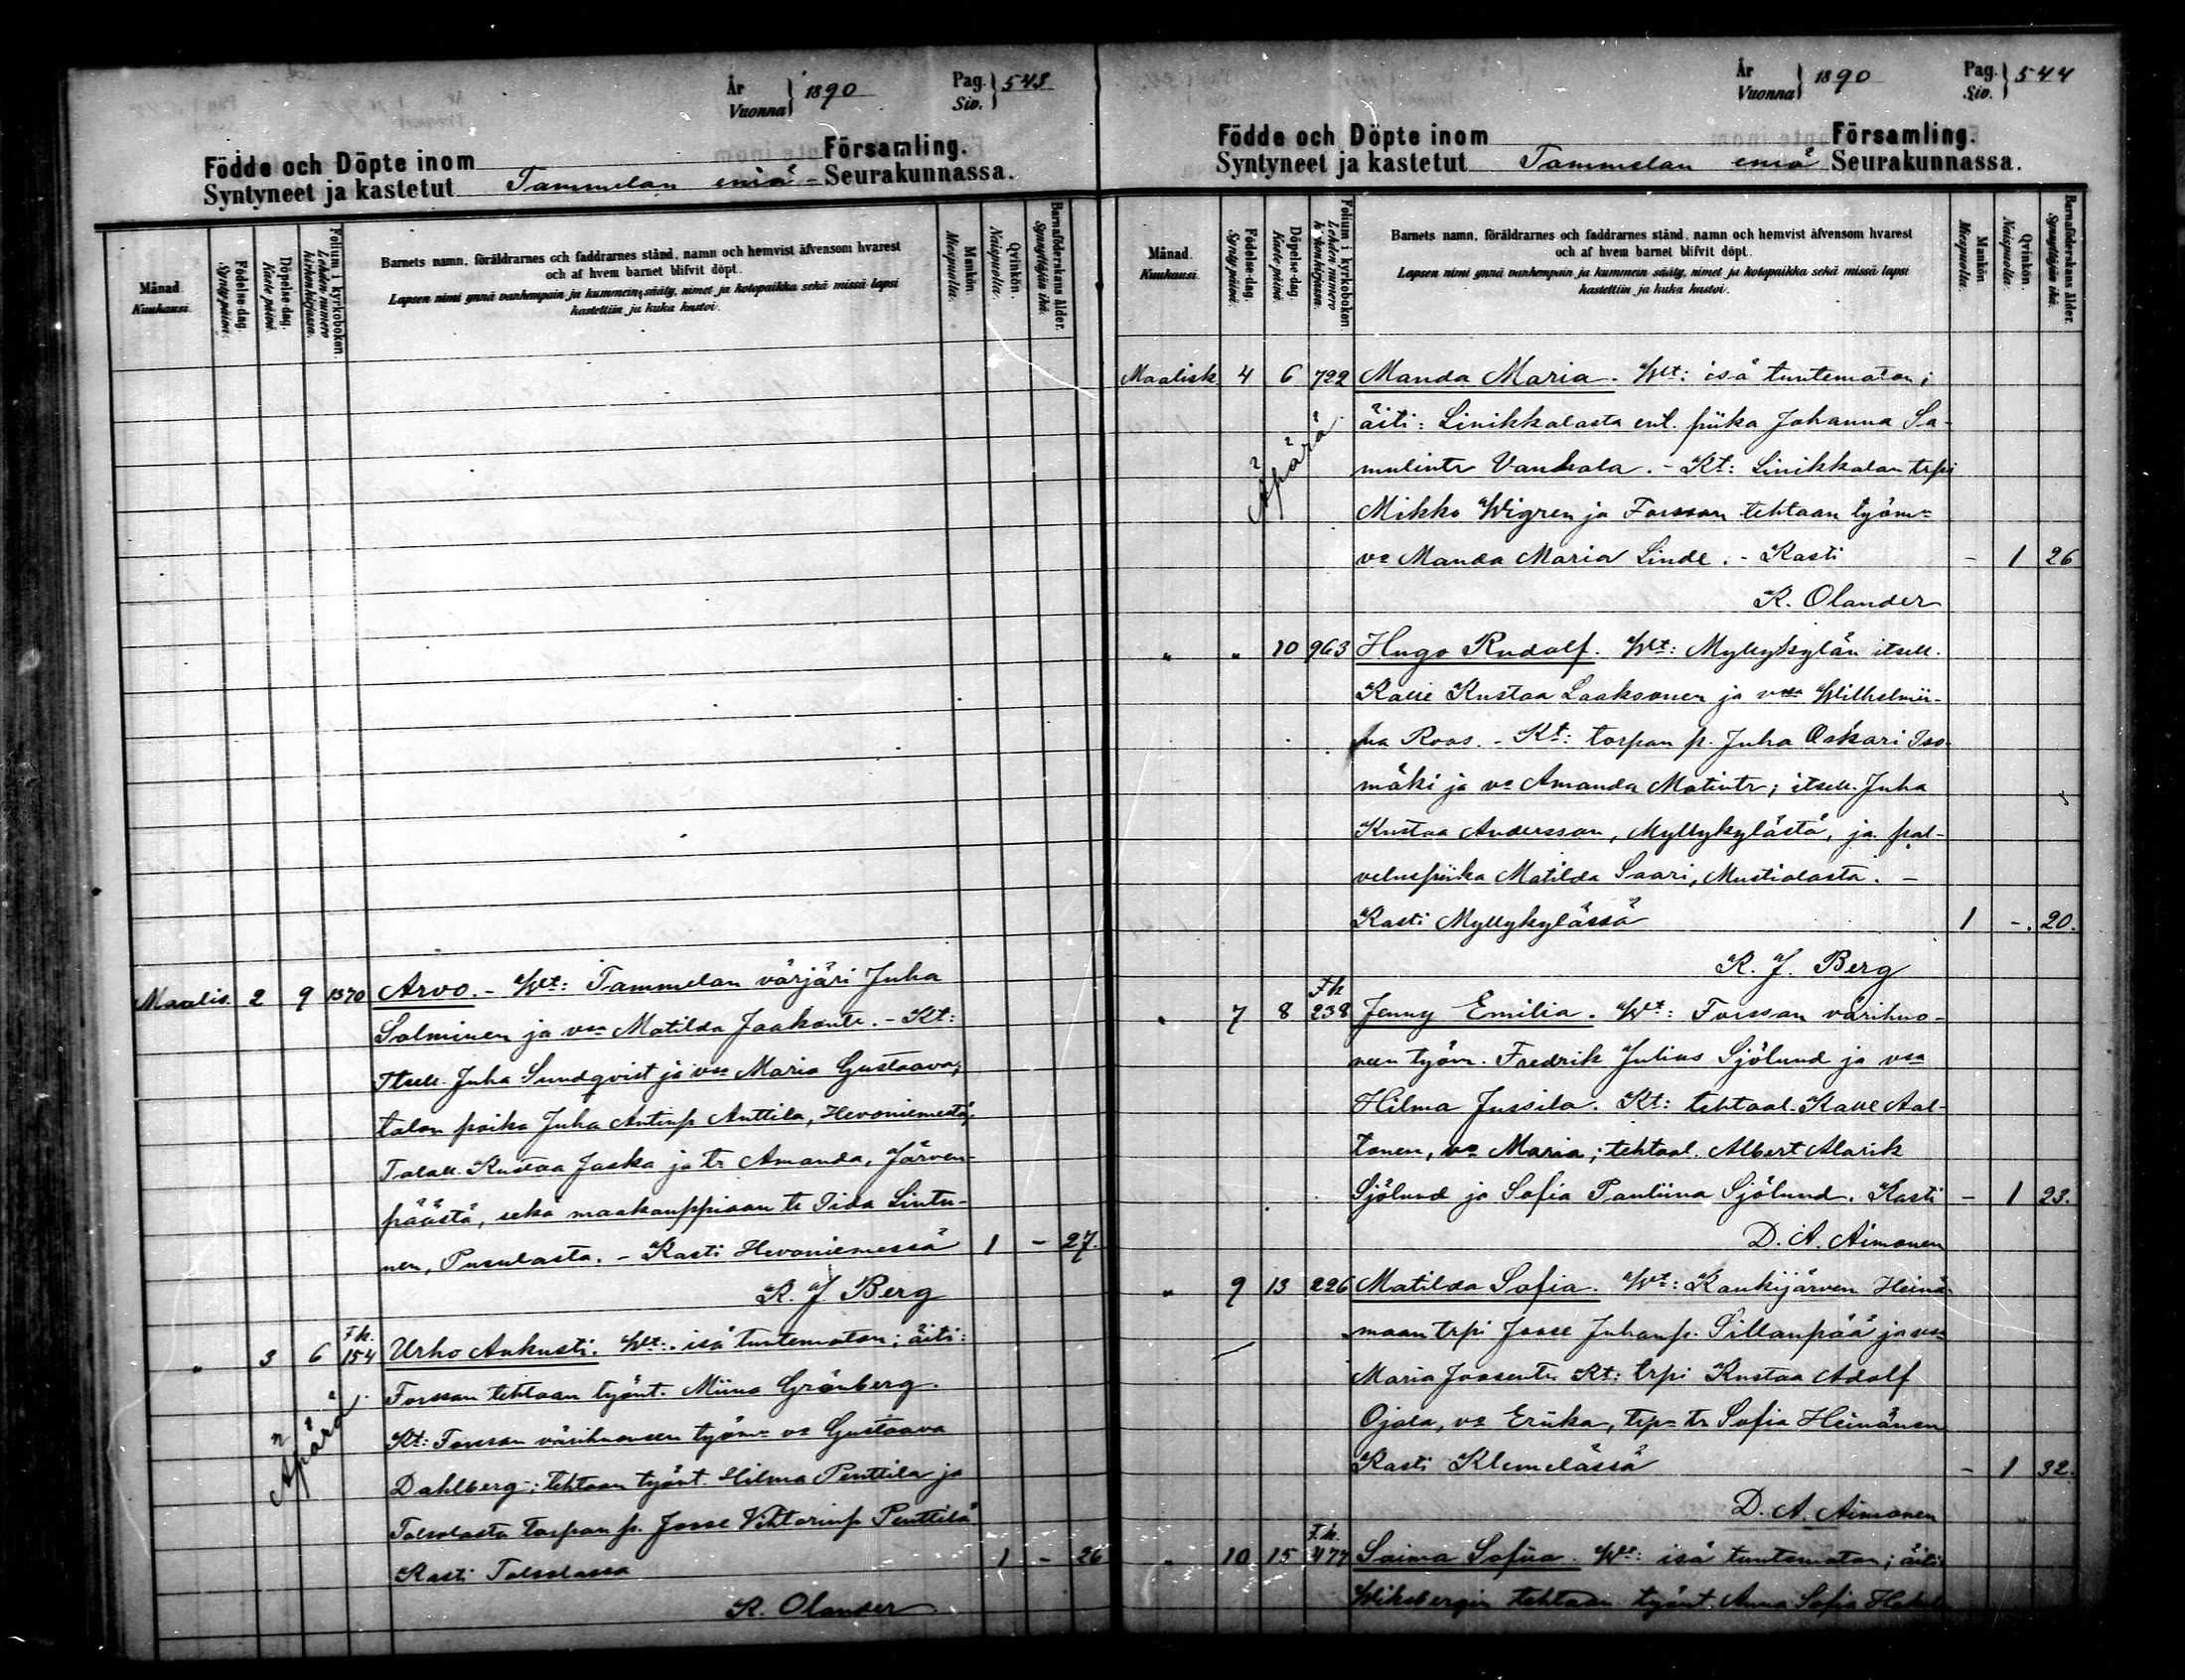 År
Vuonna } 1890
Pag.
Siv. } 543
Födde och Döpte inom Församling.
Syntyneet ja kastetut Tammelan emä- Seurakunnassa.
Månad.
Kuukausi.
Födelse-dag.
Syntypäivä.
Döpelse-dag.
Kaste-päivä.
Folium i kyrkoboken.
Lehden numero
kirkonkirjassa.
Barnets namn, föräldrarnes och faddrarnes stånd, namn och hemvist äfvensom hvarest
och af hvem barnet blifvit döpt.
Lapsen nimi ynnä vanhempain ja kummein sääty, nimet ja kotopaikka sekä missä lapsi
kastettiin ja kuka kastoi.
Mankön.
Miespuolia.
Qvinkön.
Naispuolia.
Barnaföderskans ålder.
Synnyttäjän ikä.
Maalis. 2 9 1370 Arvo. - Wt: Tammelan värjäri Juha
Salminen ja vsa Matilda Jaakontr. - Kt:
Itsell. Juha Sundqvist ja vsa Maria Gustaava;
talon poika Juha Antinp Anttila, Hevoniemestä;
Talall. Kustaa Jaska ja tr Amanda, Järven-
päästä, seka maakauppiaan tr Iida Lintu-
nen, Pusulasta. - Kasti Hevoniemessä 1 - 27.
K. J Berg
" 3 6 F.k. 154 Urho Aukusti. Wt: isä tuntematon; äiti:
Äpärä
Forssan tehtaan työnt. Miina Grönberg.
Kt: Forssan värihuoneen työm va Gustaava
Dahlberg; tehtaan työnt. Hilma Penttila ja
Talsolasta torpan p. Joose Vihtorinp Penttilä
Kasti Talsolassa 1 - 26
K. Olander
År
Vuonna } 1890
Pag.
Siv. } 544
Födde och Döpte inom Församling.
Syntyneet ja kastetut Tammelan emä Seurakunnassa.
Månad.
Kuukausi.
Födelse-dag.
Syntypäivä.
Döpelse-dag.
Kaste-päivä.
Folium i kyrkoboken.
Lehden numero
kirkonkirjassa.
Barnets namn, föräldrarnes och faddrarnes stånd, namn och hemvist äfvensom hvarest
och af hvem barnet blifvit döpt.
Lapsen nimi ynnä vanhempain ja kummein sääty, nimet ja kotopaikka sekä missä lapsi
kastettiin ja kuka kastoi.
Mankön.
Miespuolia.
Qvinkön.
Naispuolia.
Barnaföderskans ålder.
Synnyttäjän ikä.
Maalisk 4 6 722 Manda Maria. Wt: isä tuntematon;
Äpärä
äiti: Linikkalasta ent. piika Johanna Sa-
mulintr Vanhala. - Kt: Linikkalan trpi
Mikko Wigren ja Forssan tehtaan työm
va Manda Maria Linde. - Kasti - 1 26
K. Olander
" " 10 963 Hugo Rudolf. Wt: Myllykylän itsell.
Kalle Kustaa Laaksonen ja vsa Wilhelmii-
na Roos. - Kt: torpan p. Juha Oskari Iso-
mäki ja va Amanda Matintr; itsell. Juha
Kustaa Andersson, Myllykylästä, ja pal-
veluspiika Matilda Saari, Mustialasta. -
Kasti Myllykylässä 1 - 20.
K. J. Berg
" 7 8 F.k 238 Jenny Emilia. Wt: Forssan värihuo-
neen työm. Fredrik Julius Sjölund ja vsa
Hilma Jussila. Kt: tehtaal. Kalle Aal-
tonen, va Maria; tehtaal. Albert Alarik
Sjölund ja Sofia Pauliina Sjölund. Kasti - 1 23.
D. A. Aimonen
" 9 13 226 Matilda Sofia. Wt: Kaukijärven Heinä-
maan trpi Joose Juhanp. Sillanpää ja vsa
Maria Joosentr. Kt: trpi Kustaa Adolf
Ojala, va Eriika, trp tr Sofia Heinänen
Kasti Klemelässä - 1 32.
D. A. Aimonen
" 10 15 F.k. 477 Saima Sofiia. Wt: isä tuntematon; äiti
Wiksbergin tehtaan työnt. Anna Sofia